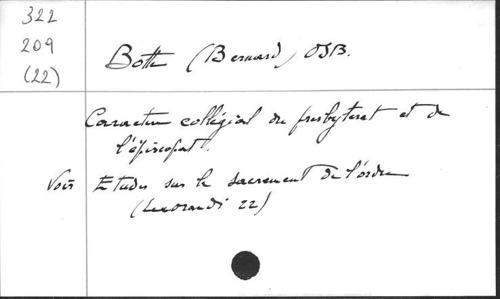 322
209
(22)
Botte (Bernard) OSB.
Caractère collégial du presbyterat et de
l'épiscopat.
Voir Etudes sur le sacrement de l'ordre
(Lex orandi 22)